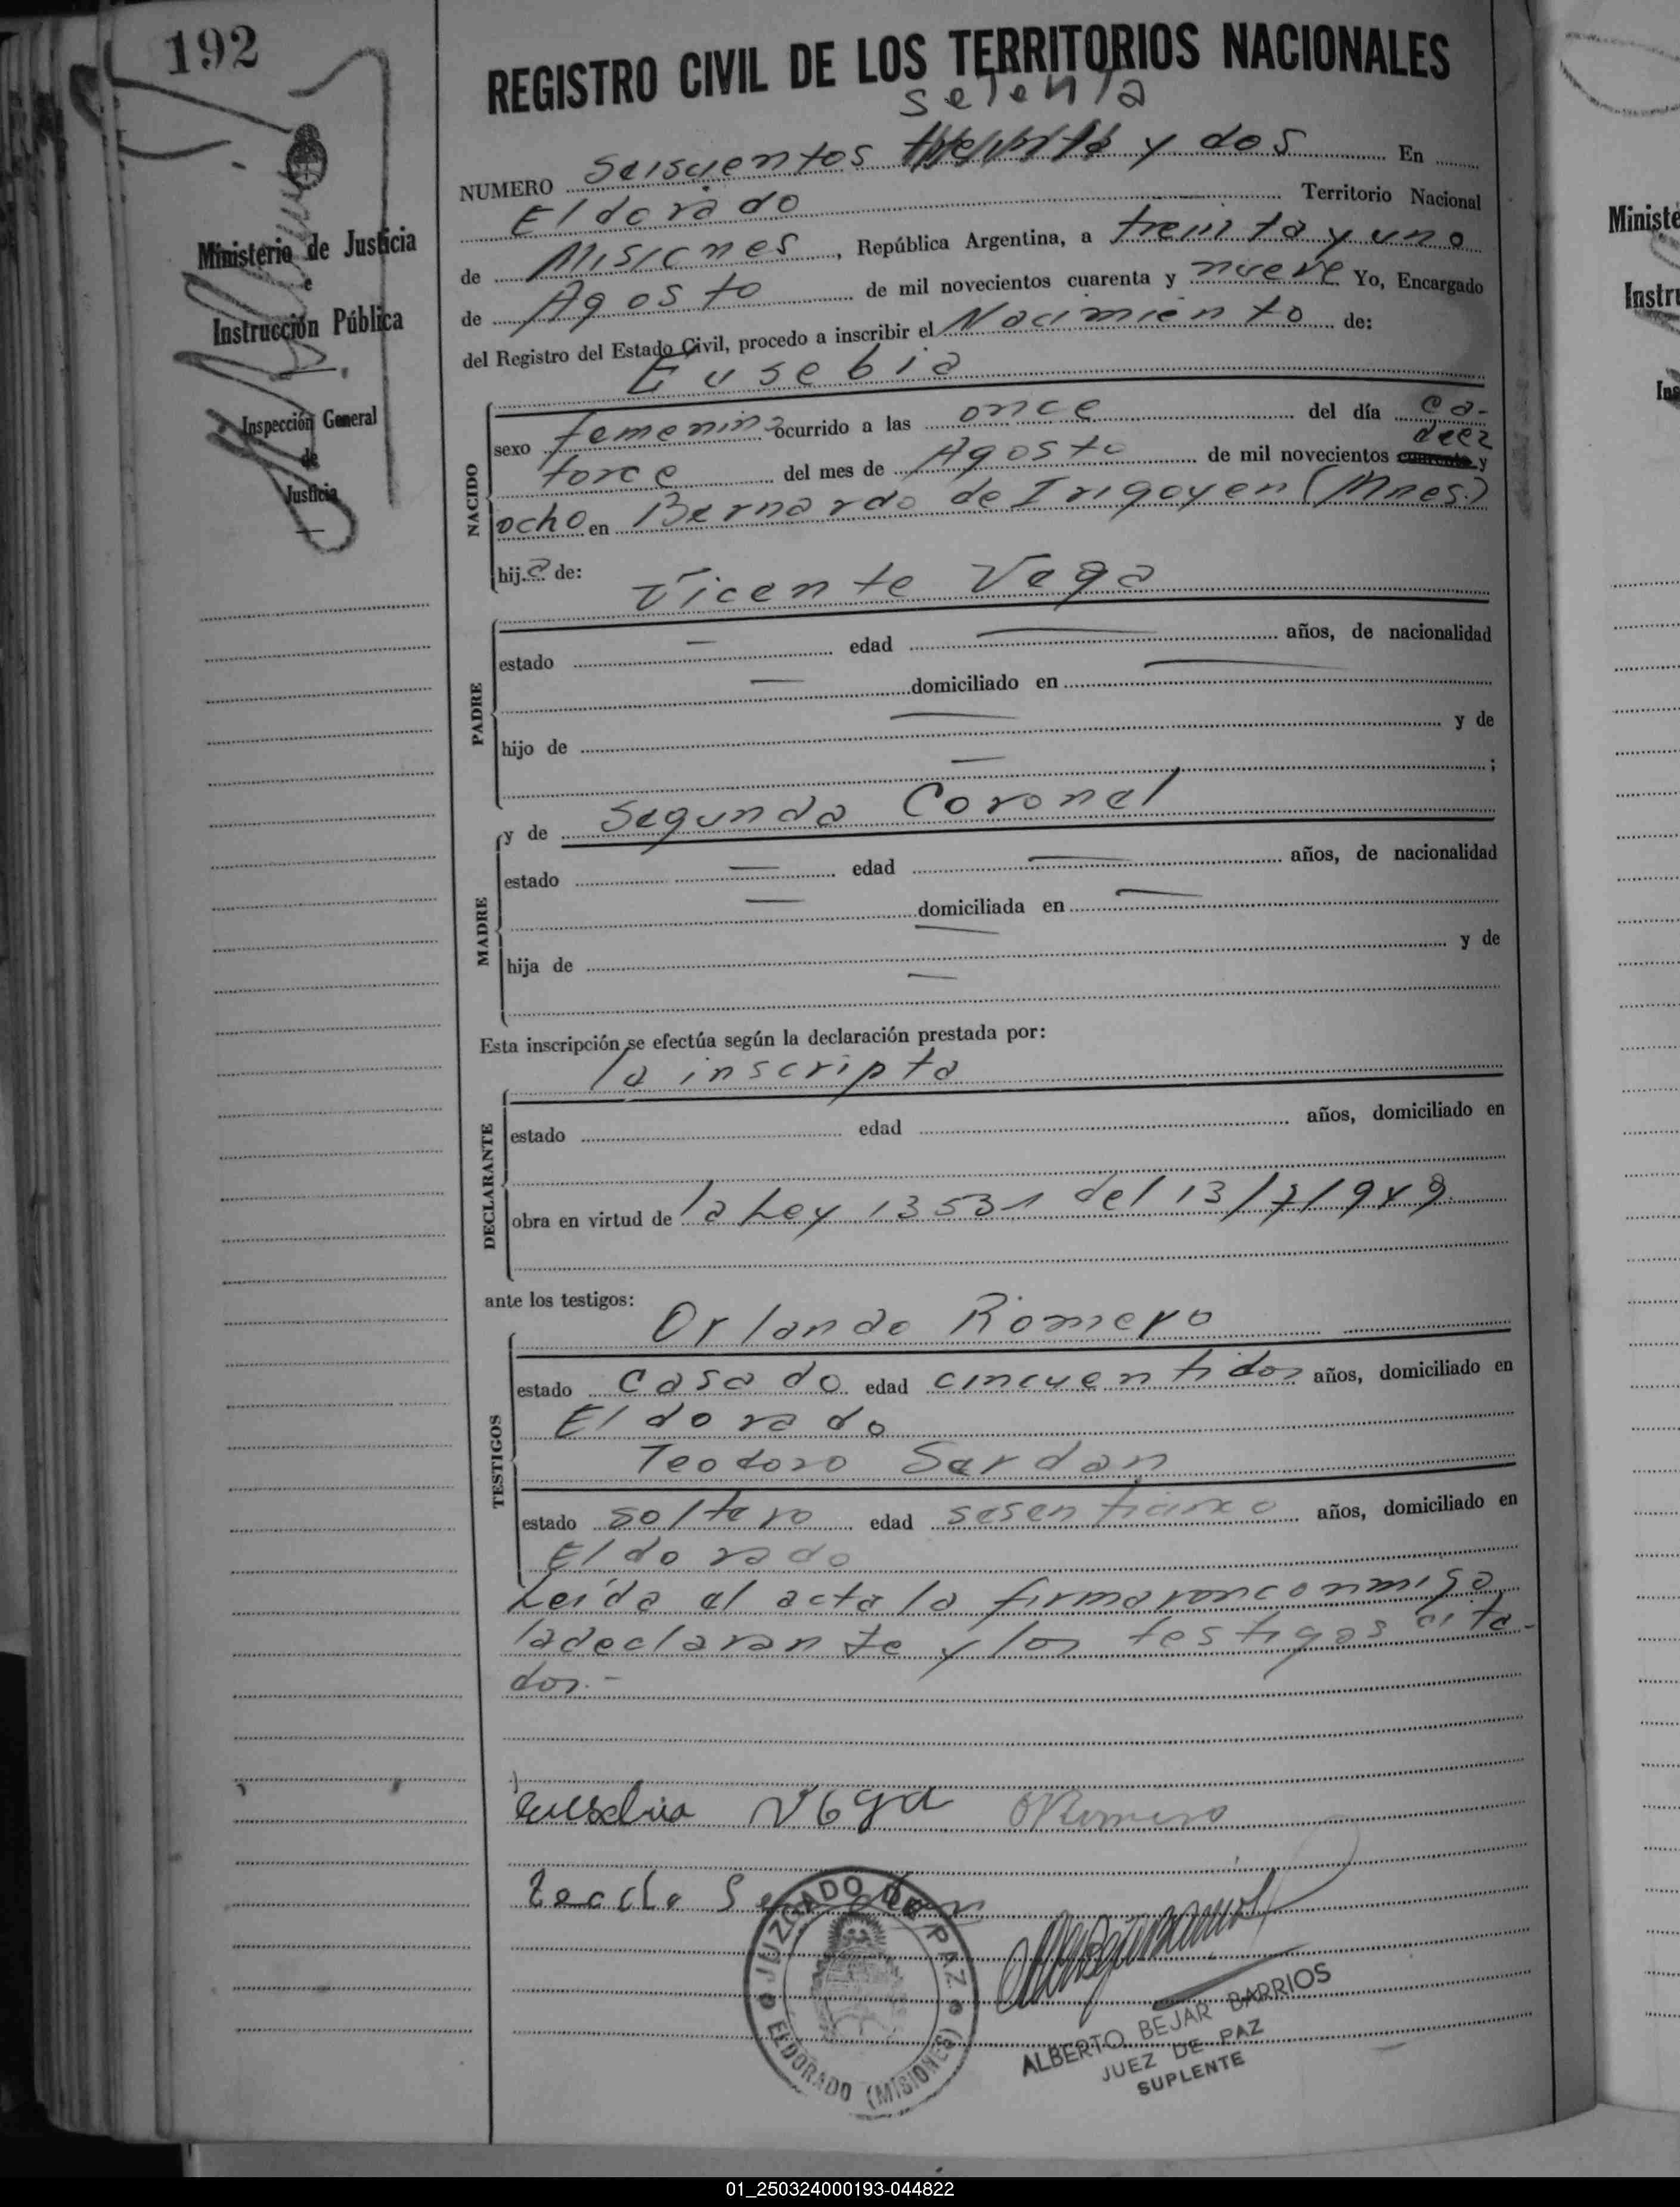 192
REGISTRO CIVIL DE LOS TERRITORIOS NACIONALES
setenta
NUMERO seiscientos y dos En
Eldorado Territorio Nacional
de Misiones, República Argentina, a treinta y uno
de Agosto de mil novecientos cuarenta y nueve Yo, Encargado
del Registro del Estado Civil, procedo a inscribir el Nacimiento de:
Eusebia
Ministerio de Justicia
e
Instrucción Pública
Inspección General
de
Justicia
NACIDO
sexo femenino ocurrido a las once del día ca-
diez
torce del mes de Agosto de mil novecientos cuarenta y
ocho en Bernardo de Irigoyen (Mnes.)
hija de:
Vicente Vega
PADRE
estado — edad — años, de nacionalidad
— domiciliado en —
hijo de — y de
— ;
y de Segunda Coronel
MADRE
estado — edad — años, de nacionalidad
— domiciliada en —
hija de — y de
—
Esta inscripción se efectúa según la declaración prestada por:
la inscripta
DECLARANTE
estado edad años, domiciliado en
obra en virtud de la Ley 13531 del 13/7/949
ante los testigos:
Orlando Romero
TESTIGOS
estado casado edad cincuentidos años, domiciliado en
Eldorado
Teodoro Serdan
estado soltero edad años, domiciliado en
Eldorado
Leída el acta la firmaron conmigo
la declarante y los testigos cita-
dos.-
Eusebia Vega ORomero
JUZGADO DE PAZ
ELDORADO (MISIONES)
ALBERTO BEJAR BARRIOS
JUEZ DE PAZ
SUPLENTE
Ministe
Instru
Ins
01_250324000193-044822